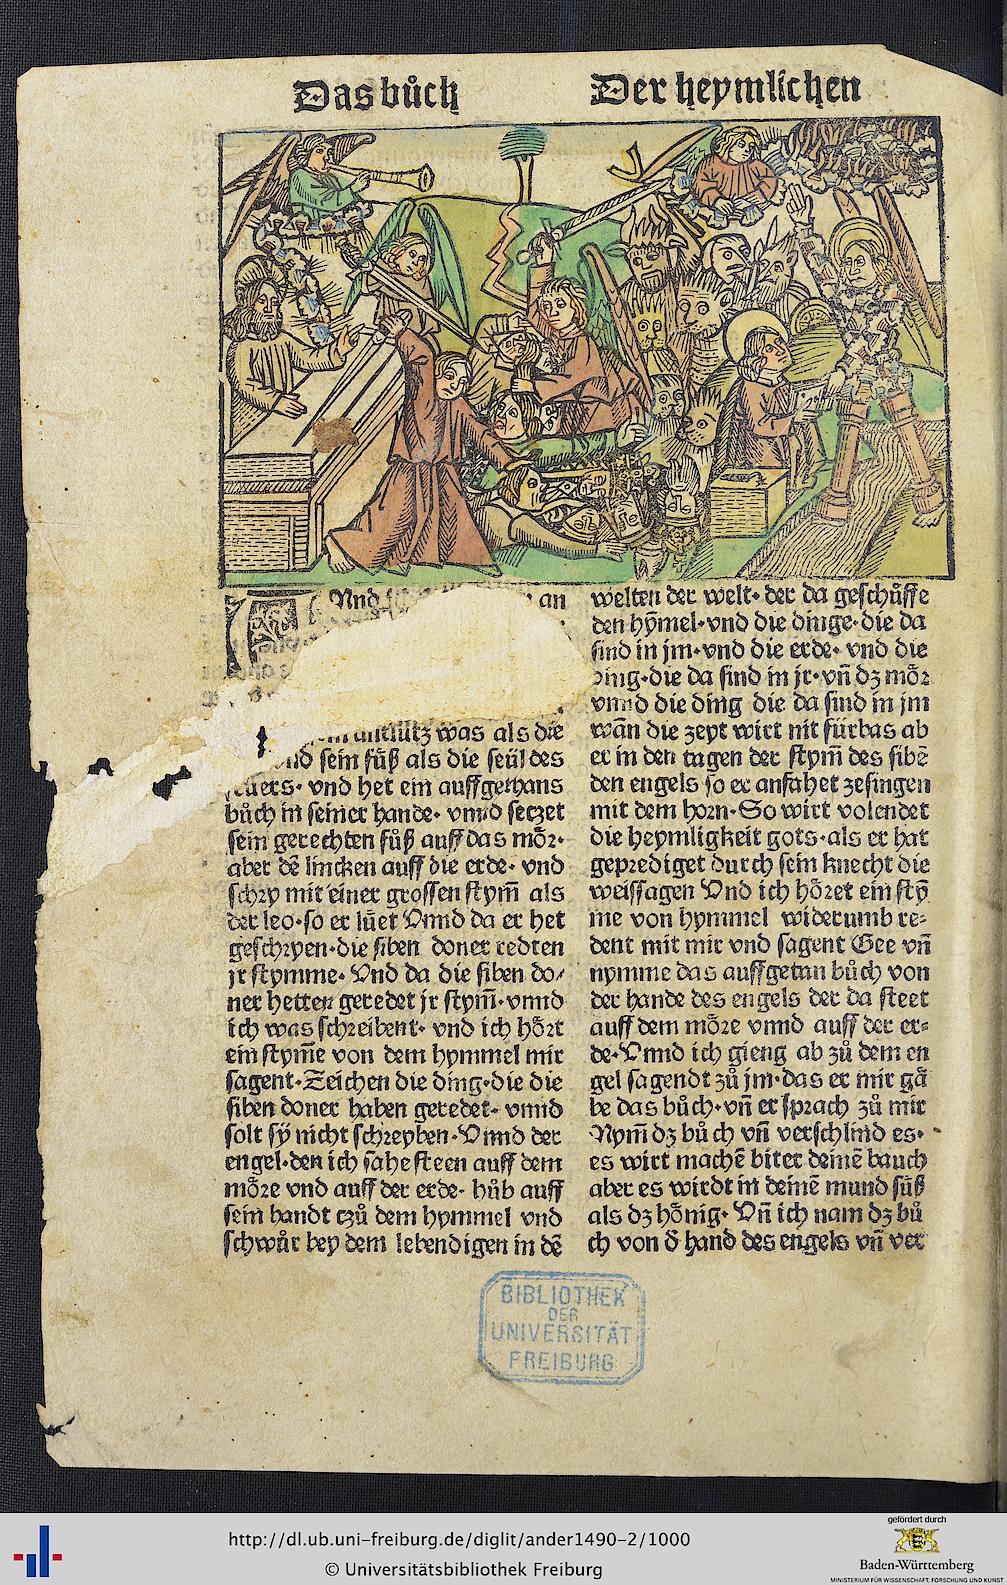 Das bůch
Der heymlichen
Vnd
an
antlütz was als die
sein fůß als die seül des
feuers· vnd het ein auffgethans
bůch in seiner hande· vnnd seczet
sein gerechten fůß auff das mo̊r·
aber dē lincken auff die erde· vnd
schry mit einer grossen stym̄ als
der leo·so er lüet Vnnd da er het
geschryen·die siben doner redten
jr stymme· Vnd da die siben do⸗
ner hetten geredet jr stym̄·vnnd
ich was schreibent· vnd ich ho̊rt
ein stym̄e von dem hymmel mir
sagent·Zeichen die ding·die die
siben doner haben geredet· vnnd
solt sy̎ nicht schreyben·Vnnd der
engel·den ich sahe steen auff dem
mo̊re vnd auff der erde· hůb auff
sein handt czů dem hymmel vnd
schwůr bey dem lebendigen in dē
welten der welt· der da geschůffe
den hy̎mel·vnd die dinge·die da
sind in jm·vnd die erde· vnd die
ding·die da sind in jr·vn̄ dz mo̊r
vnnd die ding die da sind in jm
wān die zeyt wirt nit fürbas ab
er in den tagen der stym̄ des sibē
den engels so er anfahet zesingen
mit dem horn·So wirt volendet
die heymligkeit gots·als er hat
geprediget durch sein knecht die
weissagen Vnd ich ho̊ret ein stȳ
me von hymmel widerumb re⸗
dent mit mir vnd sagent Gee vn̄
nymme das auffgetan bůch von
der hande des engels der da steet
auff dem mo̊re vnnd auff der er⸗
de·Vnnd ich gieng ab zů dem en
gel sagendt zů jm·das er mir gå
be das bůch·vn̄ er sprach zů mir
Nym̄ dz bůch vn̄ verschlind es·
es wirt machē biter deinē bauch
aber es wirdt in deinē mund sůß
als dz ho̊nig· Vn̄ ich nam dz bů
ch von d̄ hand des engels vn̄ ver
BIBLIOTHEK
DER
UNIVERSITÄT
FREIBURG
http://dl.ub.uni-freiburg.de/diglit/ander1490-2/1000
© Universitätsbibliothek Freiburg
gefördert durch
Baden-Württemberg
MINISTERIUM FÜR WISSENSCHAFT, FORSCHUNG UND KUNST